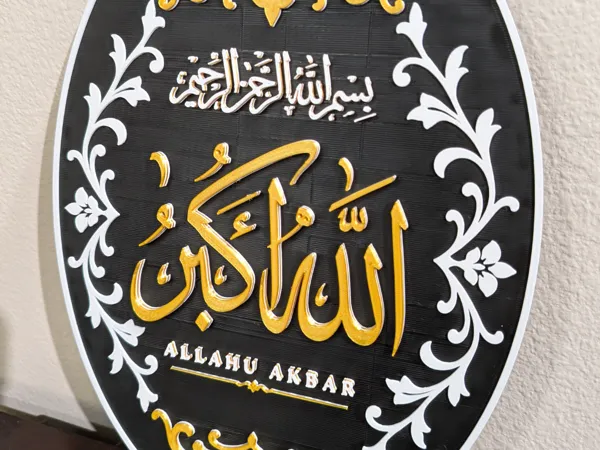 بِسْمِ اللَّهِ الرَّحْمَٰنِ الرَّحِيمِ
اللَّهُ أَكْبَرُ
ALLAHU AKBAR